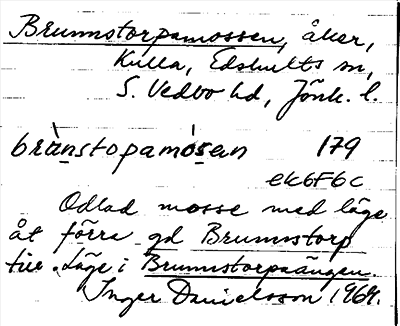 Brunnstorpamossen, åker,
Kulla, Edshults sn,
S. Vedbo hd, Jönk. l.
brànstopamósan 179
ek6F6c
Odlad mosse med läge
åt förra gd Brunnstorp
till. Läge i Brunnstorpaängen.
Inger Danielsson 1964.